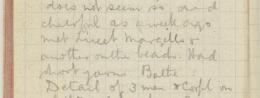 does not seem so and
cheerful as a week ago
met Lieut Margetts &
another on the beach. Had
short yarn. Bathe.
Detail of 3 men & Corpl on